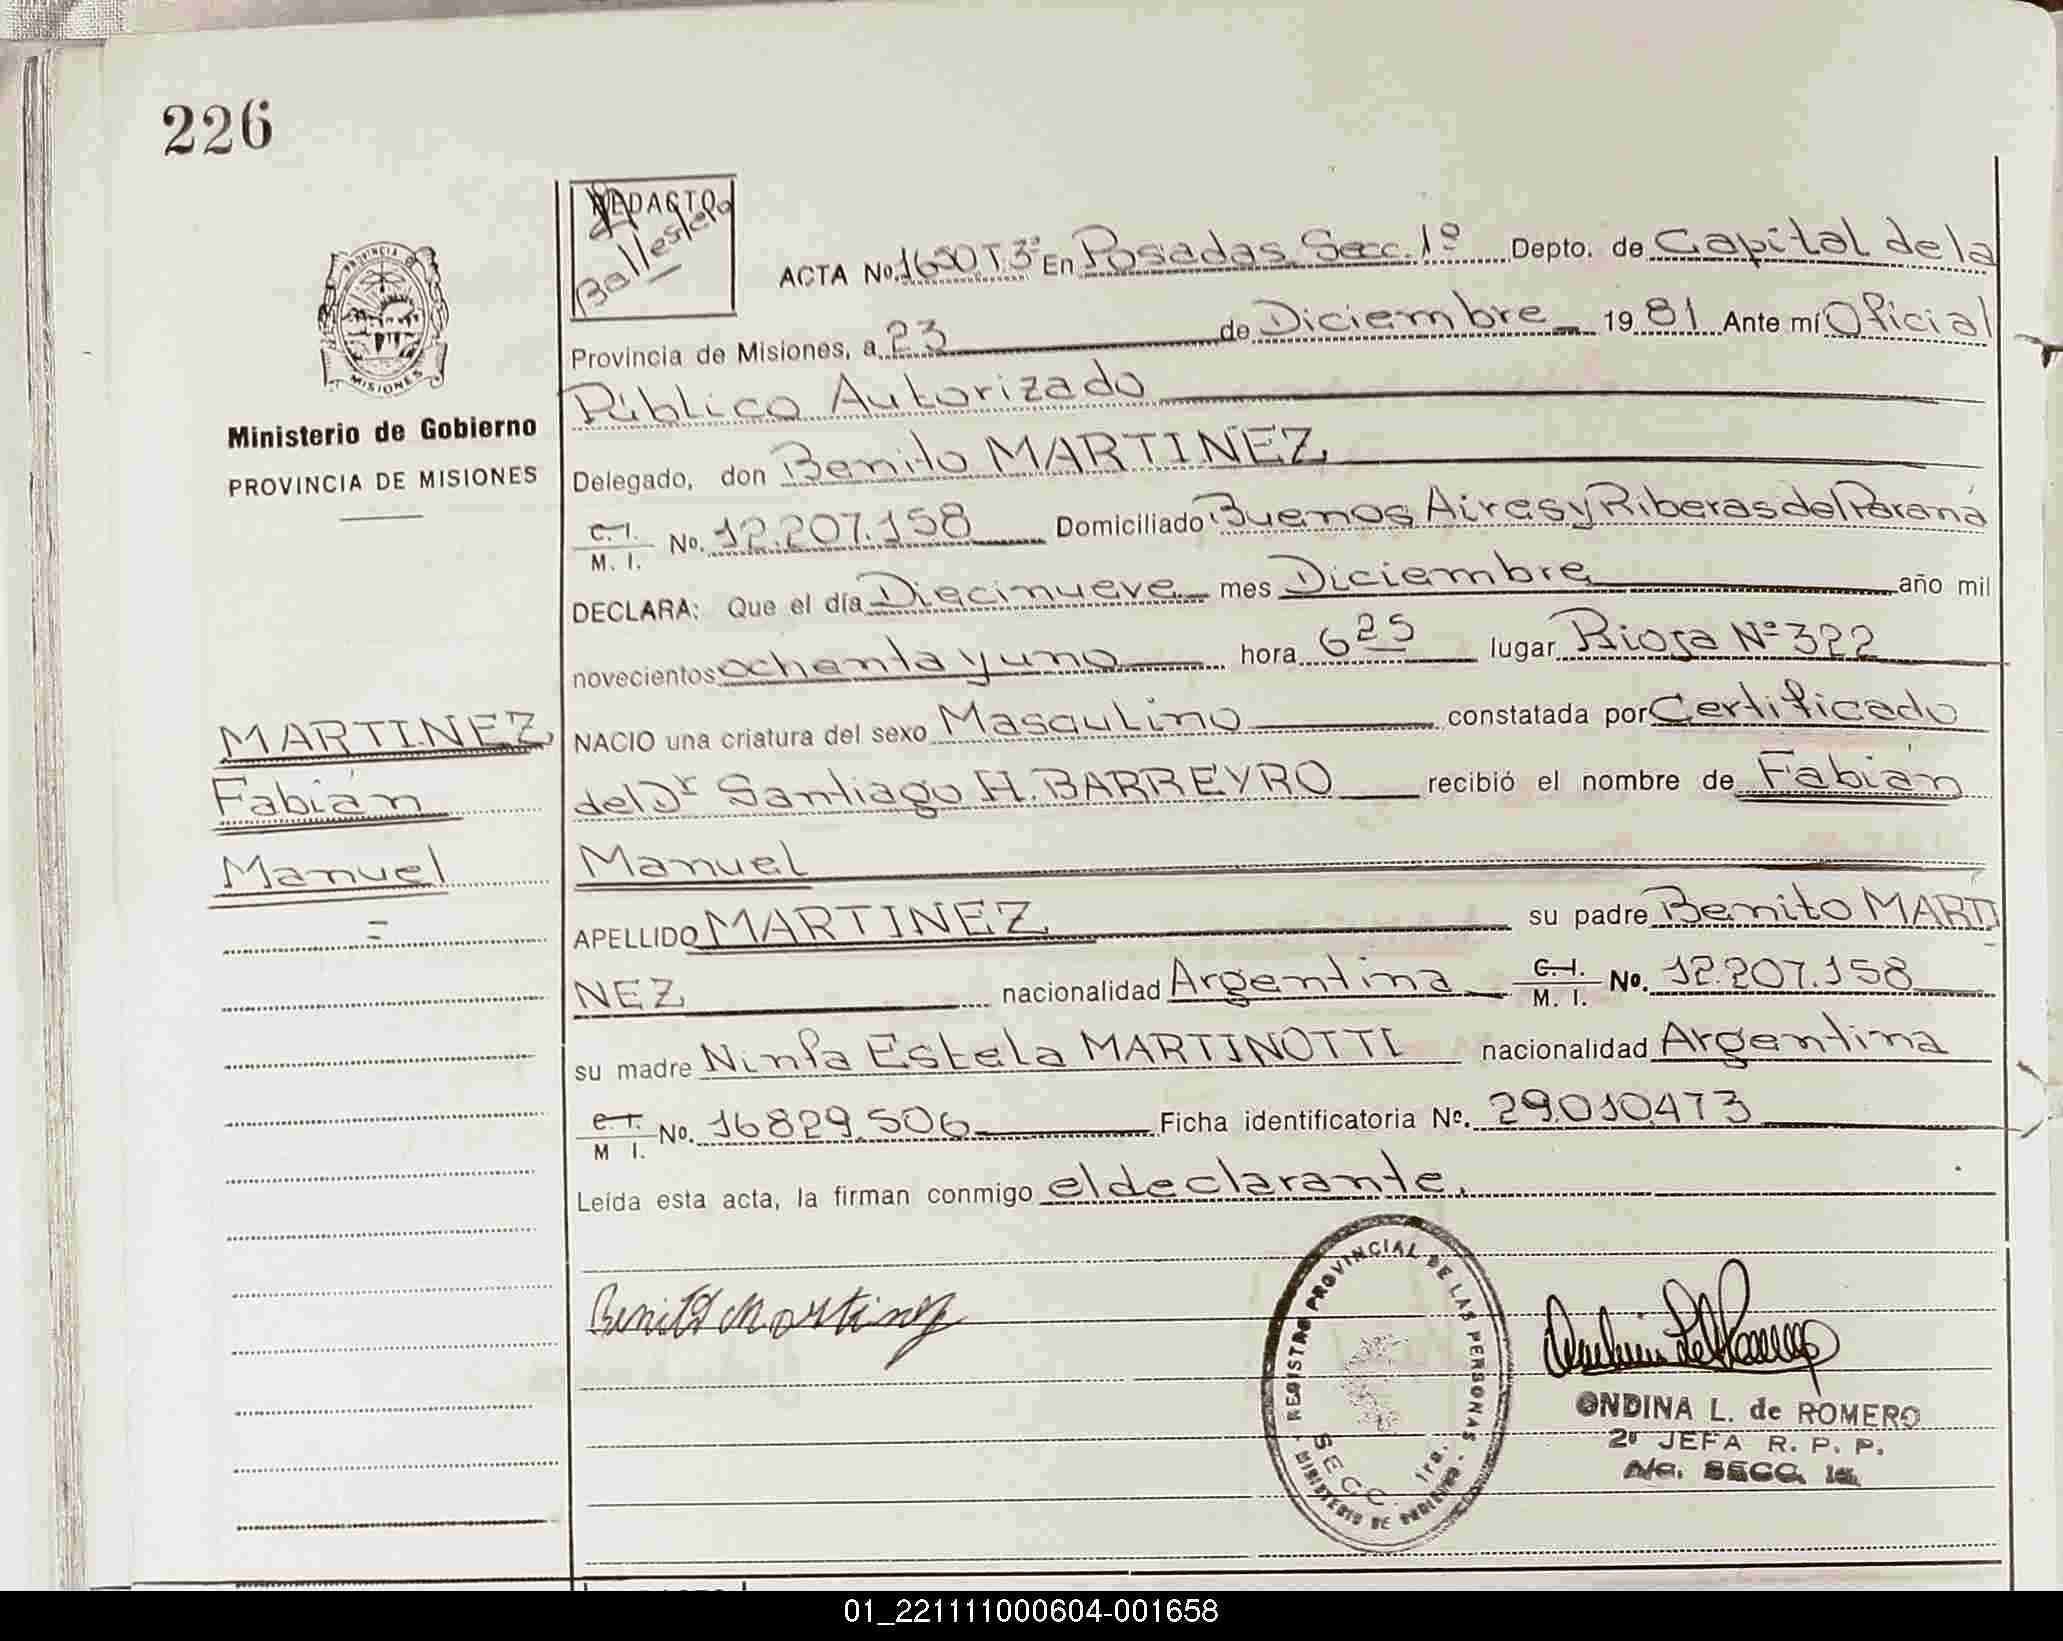 226
REDACTO
Ballestero
ACTA No. 1650.T.3º En Posadas Secc. 1º Depto. de Capital de la
Provincia de Misiones, a 23 de Diciembre 19 81 Ante mí Oficial
Público Autorizado
Ministerio de Gobierno
PROVINCIA DE MISIONES
Delegado, don Benito MARTINEZ,
C.I. M. I. No. 12.207.158 Domiciliado Buenos Aires y Riberas del Paraná
DECLARA: Que el día Diecinueve mes Diciembre año mil
novecientos ochenta y uno hora 6 25 lugar Rioja Nº 322
NACIO una criatura del sexo Masculino constatada por Certificado
del Dr Santiago H. BARREYRO recibió el nombre de Fabián
Manuel
MARTINEZ,
Fabián
Manuel
=
APELLIDO MARTINEZ su padre Benito MARTI
NEZ, nacionalidad Argentina C.I. M. I. No. 12.207.158
su madre Ninfa Estela MARTINOTTI nacionalidad Argentina
C.I. M I. No. 16829.506 Ficha identificatoria Nº. 29.010.473
Leída esta acta, la firman conmigo el declarante.
Benito Martinez
REGISTRO PROVINCIAL DE LAS PERSONAS
SECC. 1ra.
MINISTERIO DE GOBIERNO
ONDINA L. de ROMERO
2º JEFA R. P. P.
A/c. SECC. 1a.
PROVINCIA DE
MISIONES
01_221111000604-001658